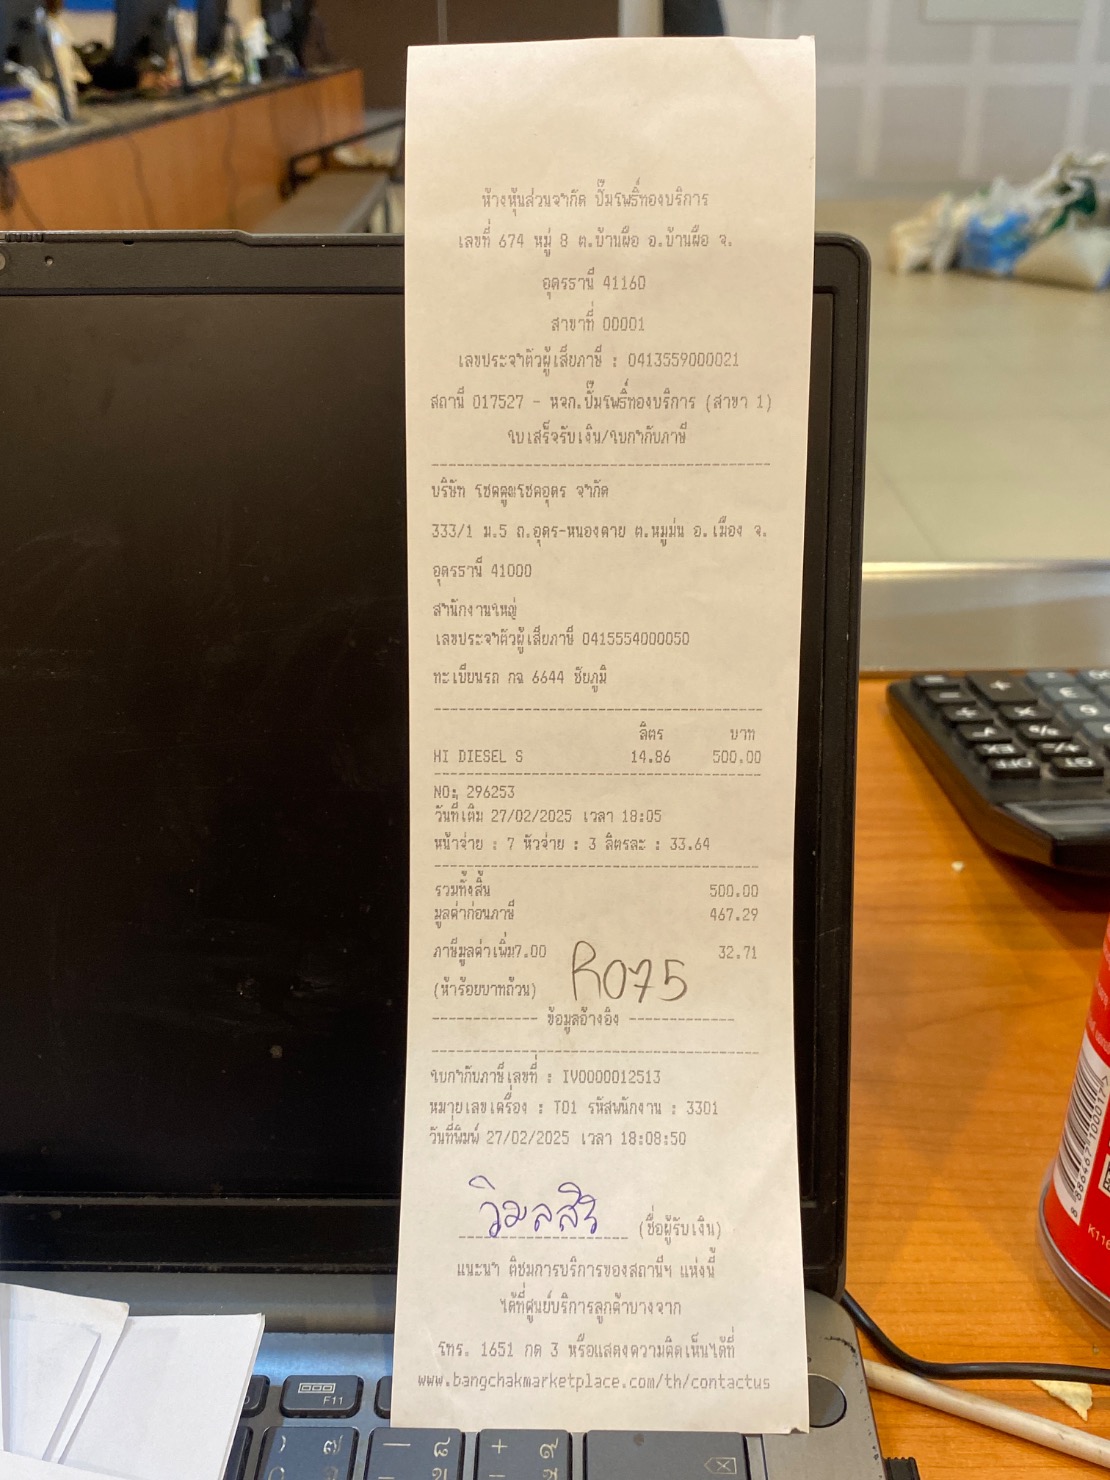 ห้างหุ้นส่วนจำกัด ปั๊มโพธิ์ทองบริการ
เลขที่ 674 หมู่ 8 ต.บ้านผือ อ.บ้านผือ จ.
อุดรธานี 41160
สาขาที่ 00001
เลขประจำตัวผู้เสียภาษี : 0413559000021
สถานี 017527 - หจก.ปั๊มโพธิ์ทองบริการ (สาขา 1)
ใบเสร็จรับเงิน/ใบกำกับภาษี
บริษัท โชคคูณโชคอุดร จำกัด
333/1 ม.5 ถ.อุดร-หนองคาย ต.หมูม่น อ.เมือง จ.
อุดรธานี 41000
สำนักงานใหญ่
เลขประจำตัวผู้เสียภาษี 0415554000050
ทะเบียนรถ กฉ 6644 ชัยภูมิ
ลิตร บาท
HI DIESEL S 14.86 500.00
NO: 296253
วันที่เติม 27/02/2025 เวลา 18:05
หน้าจ่าย : 7 หัวจ่าย : 3 ลิตรละ : 33.64
รวมทั้งสิ้น 500.00
มูลค่าก่อนภาษี 467.29
ภาษีมูลค่าเพิ่ม7.00 32.71
R075
(ห้าร้อยบาทถ้วน)
------------ ข้อมูลอ้างอิง ------------
ใบกำกับภาษีเลขที่ : IV0000012513
หมายเลขเครื่อง : T01 รหัสพนักงาน : 3301
วันที่พิมพ์ 27/02/2025 เวลา 18:08:50
วิมลสิริ (ชื่อผู้รับเงิน)
แนะนำ ติชมการบริการของสถานีฯ แห่งนี้
ได้ที่ศูนย์บริการลูกค้าบางจาก
โทร. 1651 กด 3 หรือแสดงความคิดเห็นได้ที่
www.bangchakmarketplace.com/th/contactus
F11